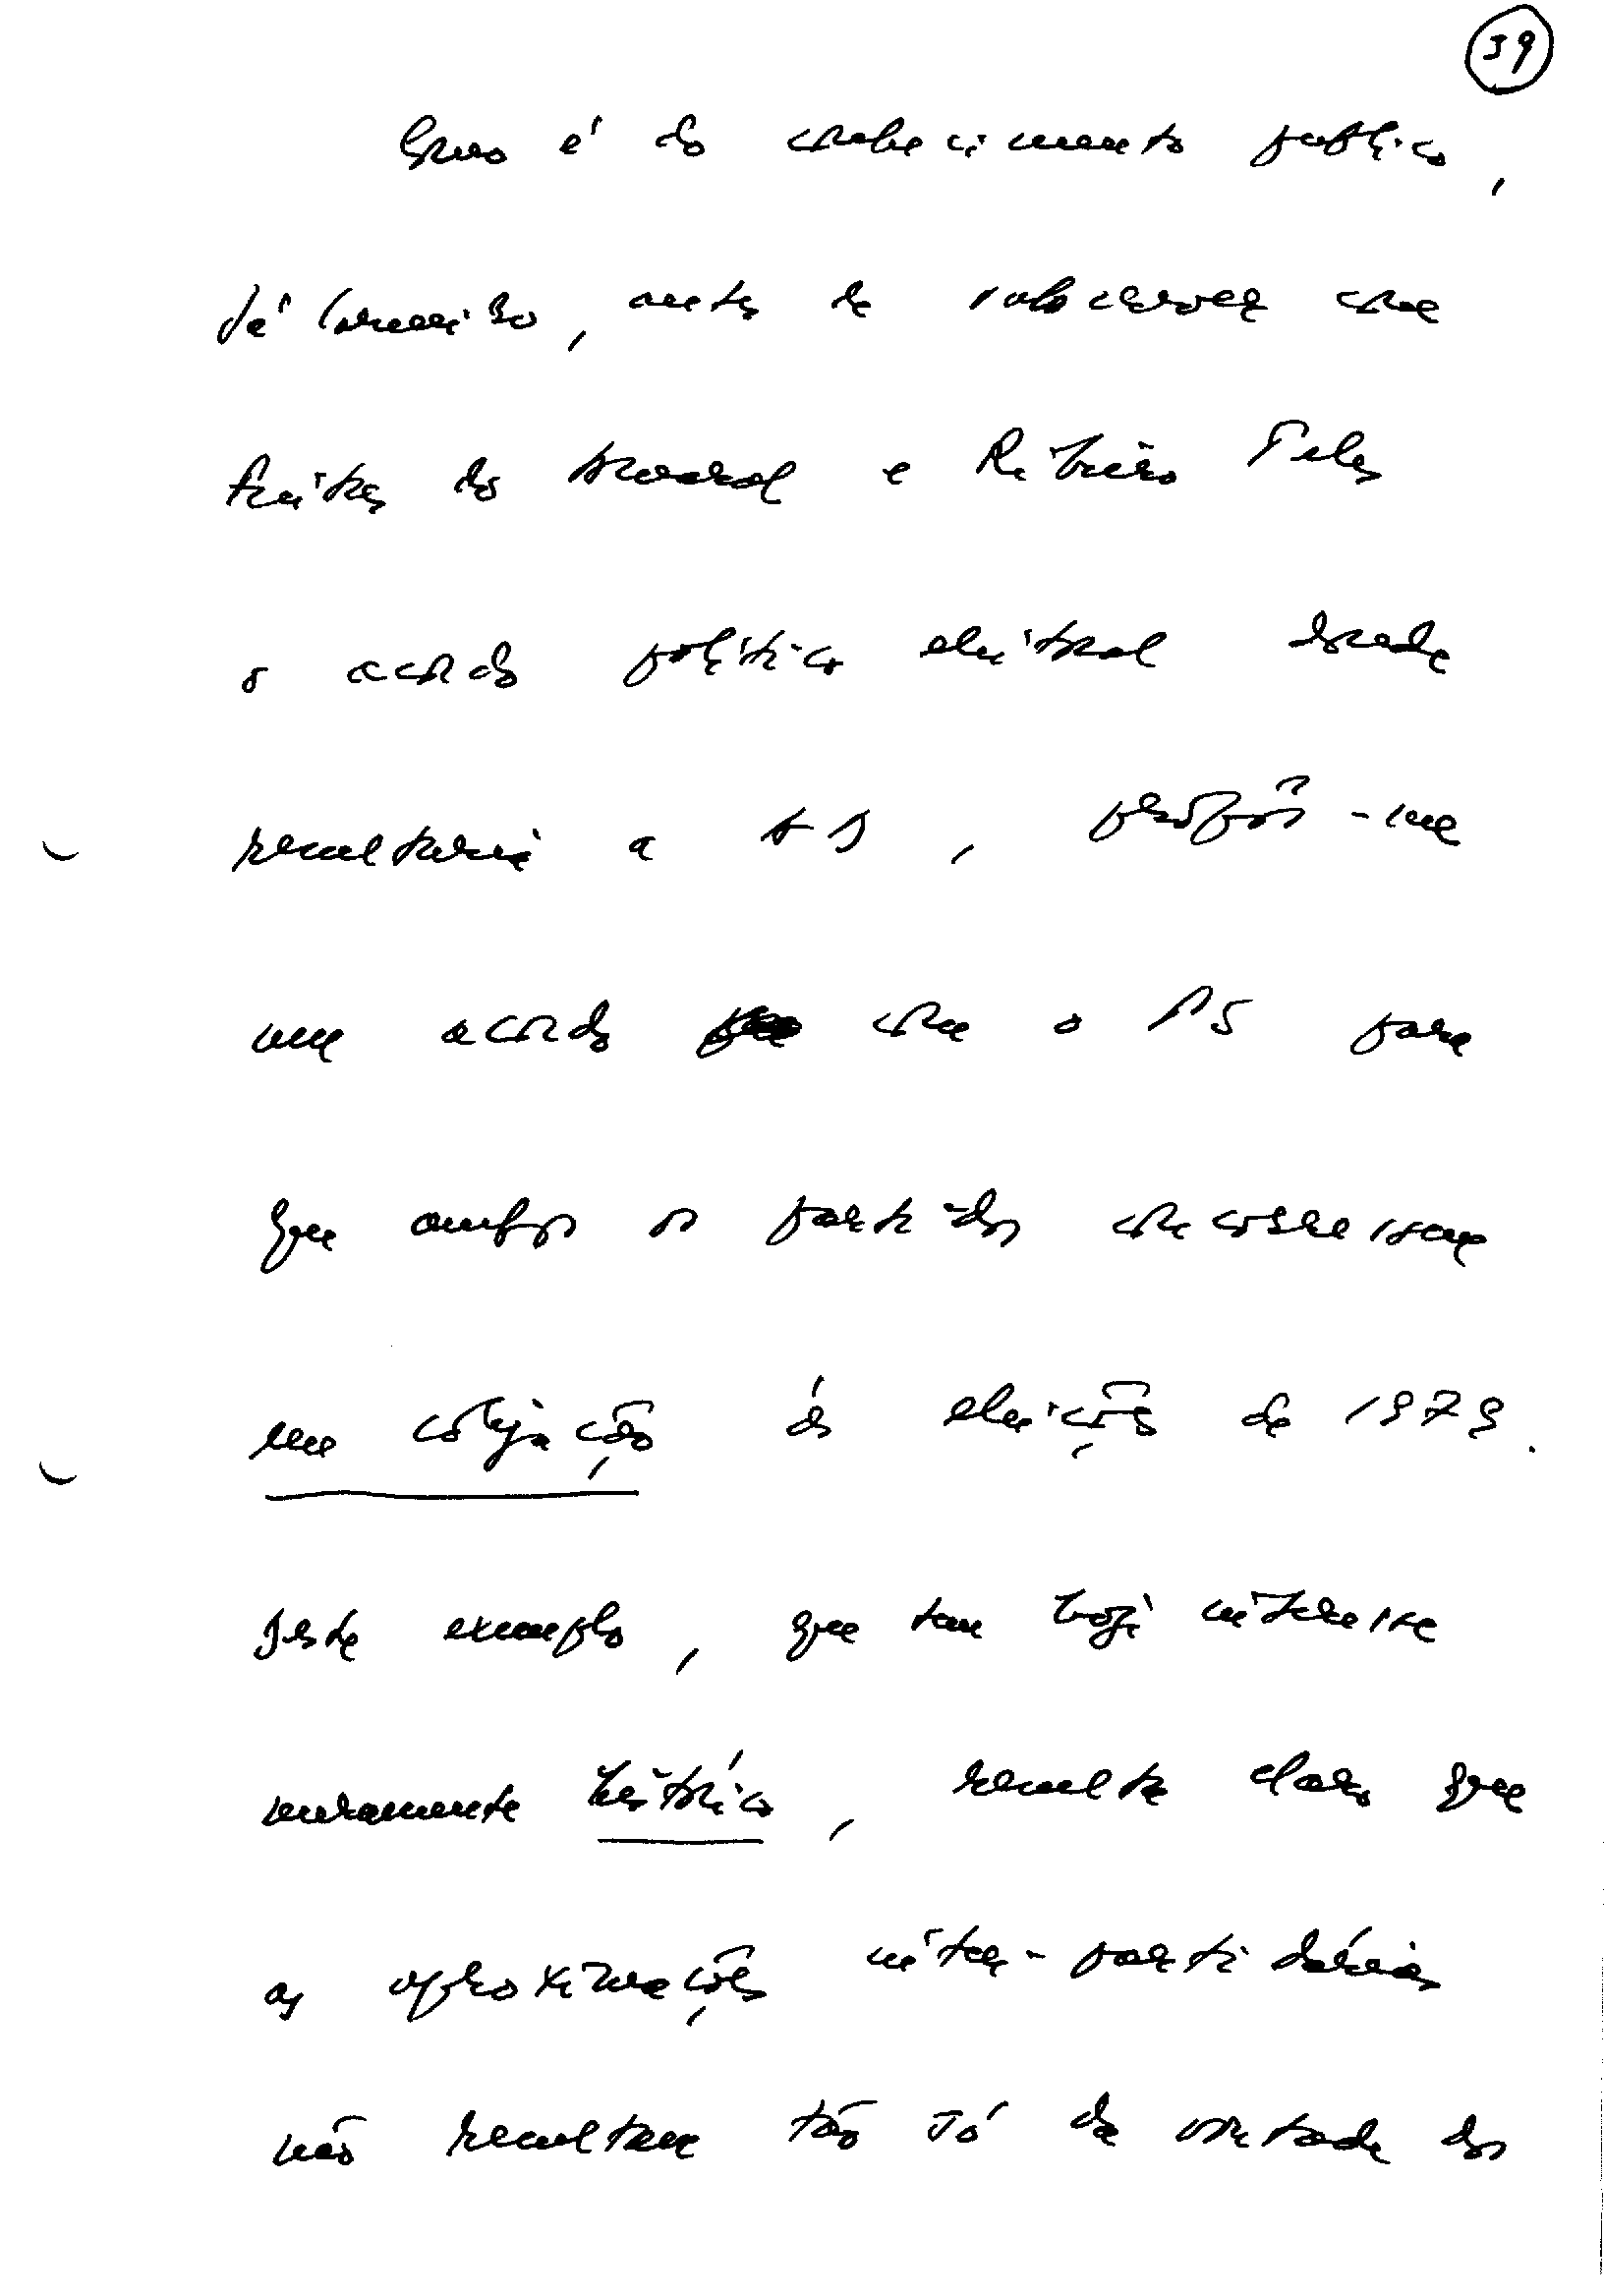 39
Como é do conhecimento público,
Sá Carneiro, antes de subscrever com
Freitas do Amaral e Ribeiro Teles
o acordo político eleitoral donde
resultaria a AD, propôs-me
um acordo com o PS para
que ambos os partidos concorressem
em coligação às eleições de 1979.
Deste exemplo, que tem hoje interesse
meramente histórico, resulta claro que
as aproximações inter-partidárias
não resultam tão só da vontade dos